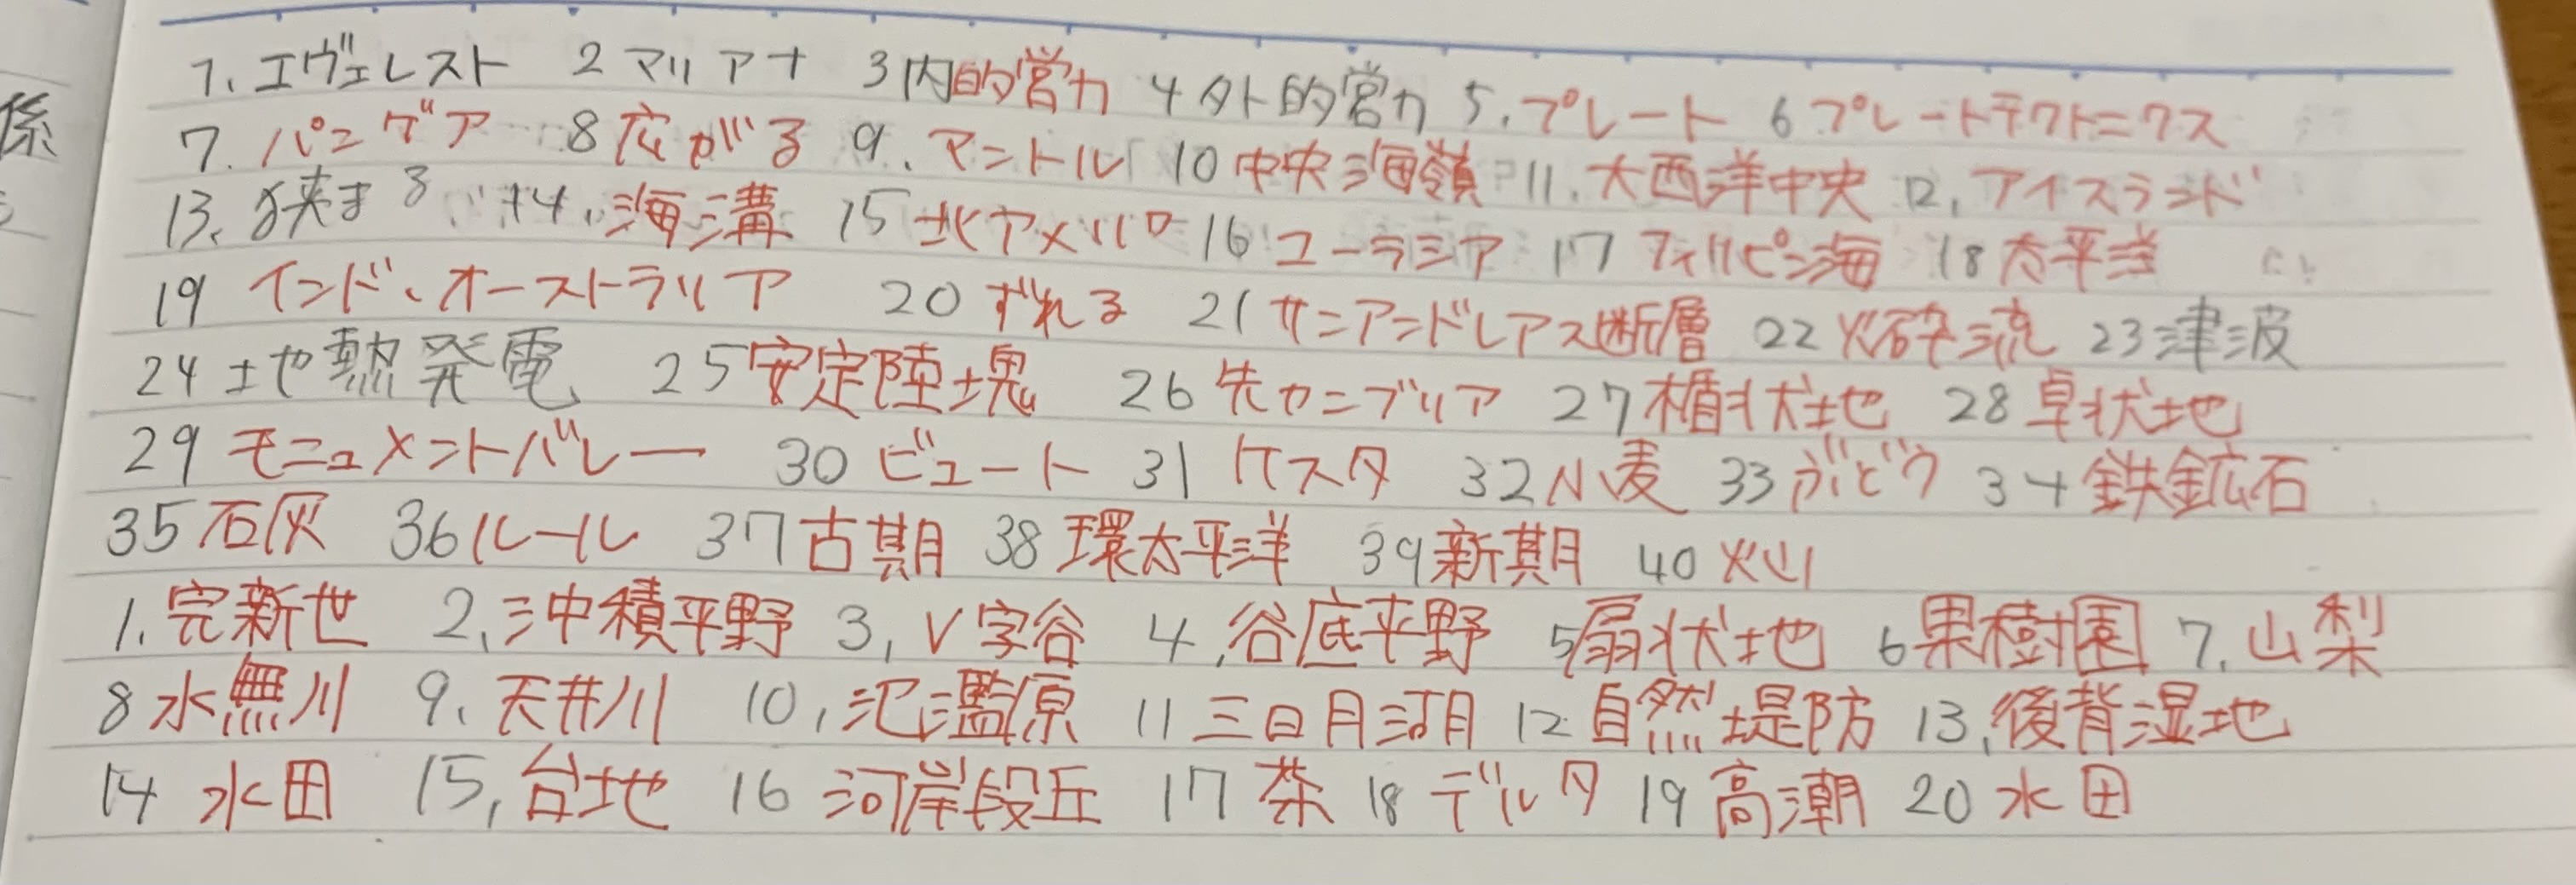 係
1. エヴェレスト 2 マリアナ 3 内的営力 4 外的営力 5. プレート 6 プレートテクトニクス
7. パンゲア 8 広がる 9. マントル 10 中央海嶺 11. 大西洋中央 12. アイスランド
13. 狭まる 14. 海溝 15 北アメリカ 16 ユーラシア 17 フィリピン海 18 太平洋
19 インド、オーストラリア 20 ずれる 21 サンアンドレアス断層 22 火砕流 23 津波
24 地熱発電 25 安定陸塊 26 先カンブリア 27 楯状地 28 卓状地
29 モニュメントバレー 30 ビュート 31 ケスタ 32 小麦 33 ぶどう 34 鉄鉱石
35 石灰 36 ルール 37 古期 38 環太平洋 39 新期 40 火山
1. 完新世 2. 沖積平野 3. V字谷 4. 谷底平野 5 扇状地 6 果樹園 7. 山梨
8 水無川 9. 天井川 10. 氾濫原 11 三日月湖 12 自然堤防 13. 後背湿地
14 水田 15. 台地 16 河岸段丘 17 茶 18 デルタ 19 高潮 20 水田